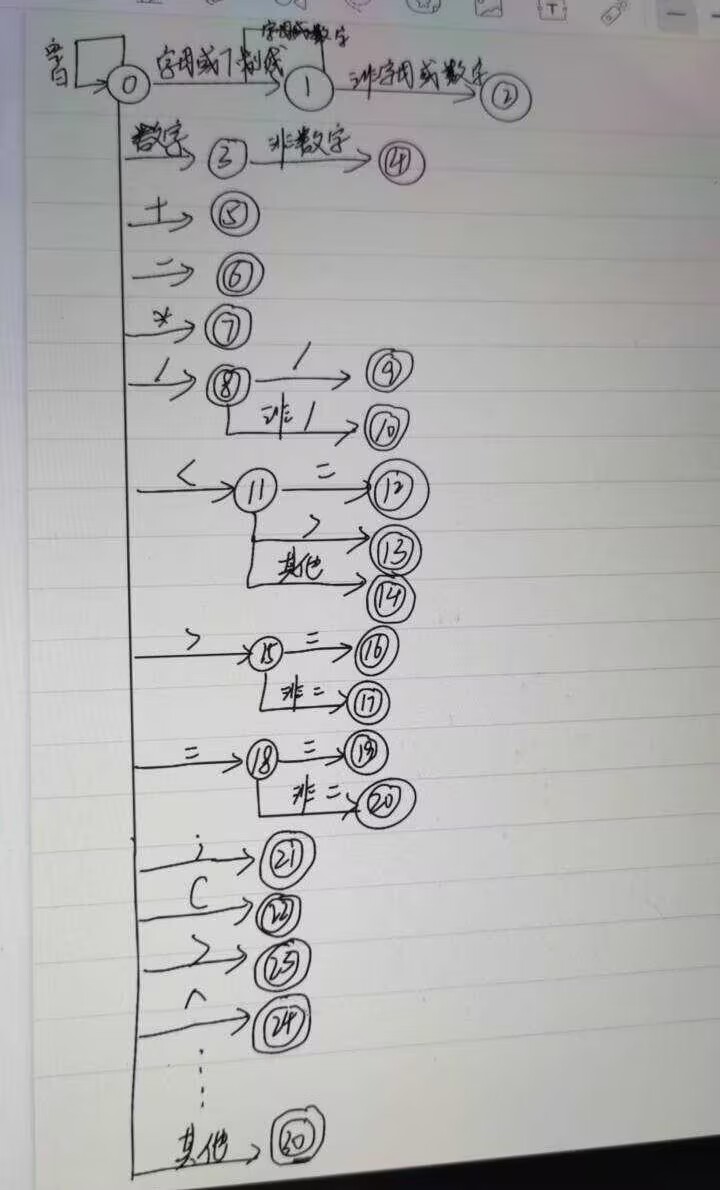 字母或数字
空白 0 字母或下划线 1 非字母或数字 2
数字 3 非数字 4
+ 5
- 6
* 7
/ 8 / 9
非/ 10
< 11 = 12
> 13
其他 14
> 15 = 16
非= 17
= 18 = 19
非= 20
; 21
( 22
) 23
^ 24
......
其他 30